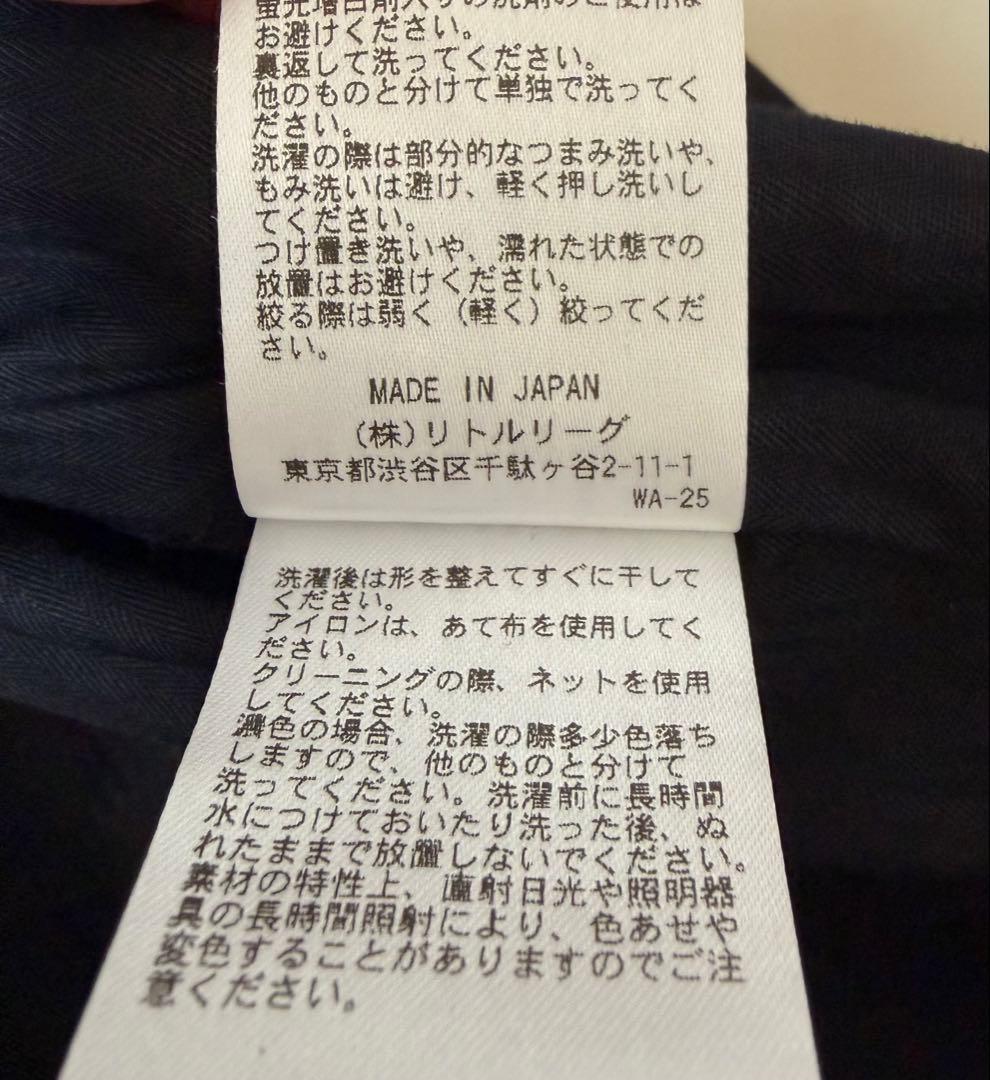 蛍光増白剤入りの洗剤のご使用は
お避けください。
裏返して洗ってください。
他のものと分けて単独で洗ってく
ださい。
洗濯の際は部分的なつまみ洗いや、
もみ洗いは避け、軽く押し洗いし
てください。
つけ置き洗いや、濡れた状態での
放置はお避けください。
絞る際は弱く（軽く）絞ってくだ
さい。
MADE IN JAPAN
(株)リトルリーグ
東京都渋谷区千駄ヶ谷2-11-1
WA-25
洗濯後は形を整えてすぐに干して
ください。
アイロンは、あて布を使用してく
ださい。
クリーニングの際、ネットを使用
してください。
濃色の場合、洗濯の際多少色落ち
しますので、他のものと分けて
洗ってください。洗濯前に長時間
水につけておいたり洗った後、ぬ
れたままで放置しないでください。
素材の特性上、直射日光や照明器
具の長時間照射により、色あせや
変色することがありますのでご注
意ください。